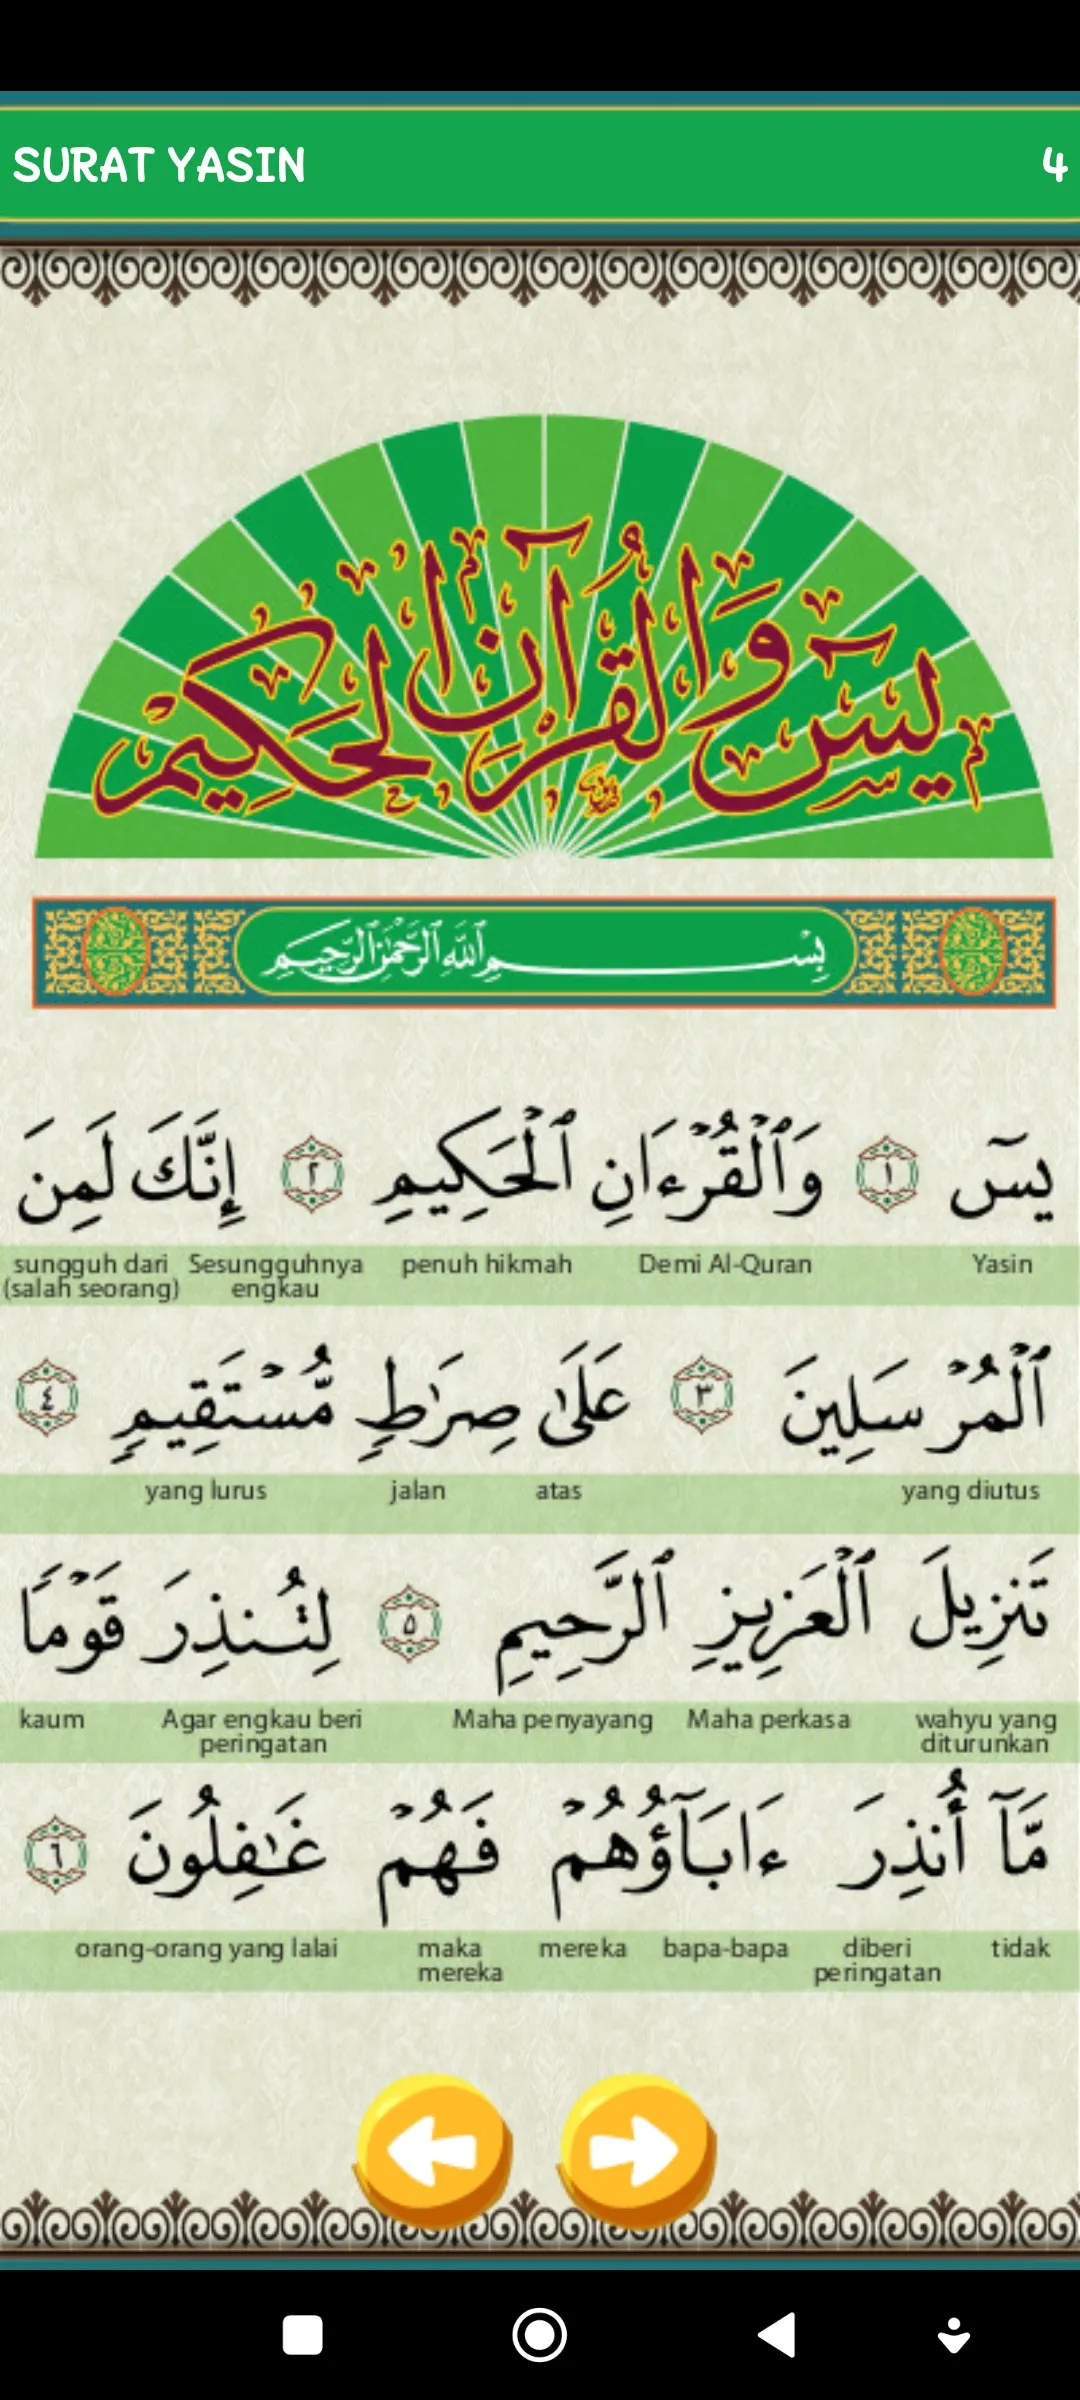 SURAT YASIN 4
يس وَالْقُرْآنِ الْحَكِيْمِ
بِسْمِ ٱللَّهِ ٱلرَّحْمَٰنِ ٱلرَّحِيمِ
يسٓ ١ وَٱلْقُرْءَانِ ٱلْحَكِيمِ ٢ إِنَّكَ لَمِنَ
Yasin Demi Al-Quran penuh hikmah Sesungguhnya engkau sungguh dari (salah seorang)
ٱلْمُرْسَلِينَ ٣ عَلَىٰ صِرَٰطٍ مُّسْتَقِيمٍ ٤
yang diutus atas jalan yang lurus
تَنزِيلَ ٱلْعَزِيزِ ٱلرَّحِيمِ ٥ لِتُنذِرَ قَوْمًا
wahyu yang diturunkan Maha perkasa Maha penyayang Agar engkau beri peringatan kaum
مَّآ أُنذِرَ ءَابَآؤُهُمْ فَهُمْ غَٰفِلُونَ ٦
tidak diberi peringatan bapa-bapa mereka maka mereka orang-orang yang lalai